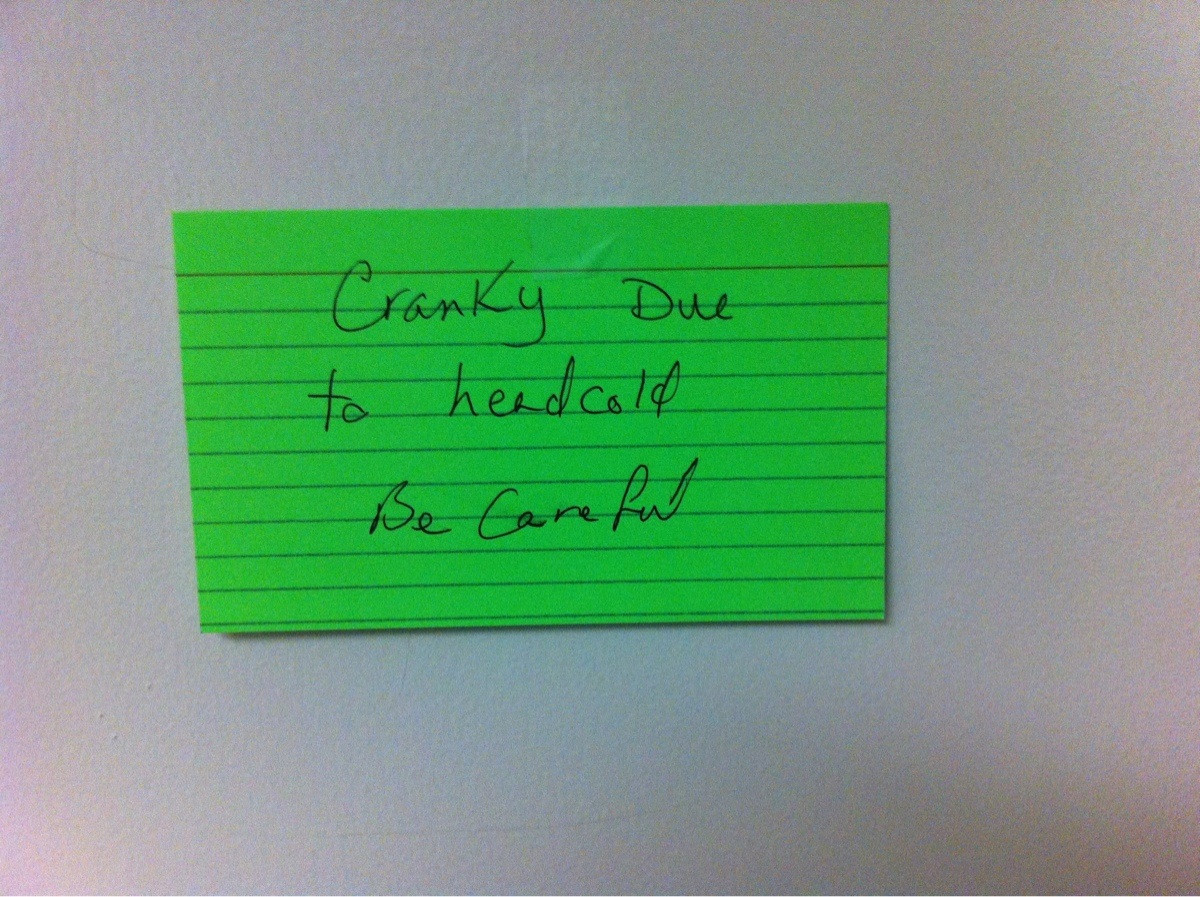 Cranky Due
to headcold
Be Careful